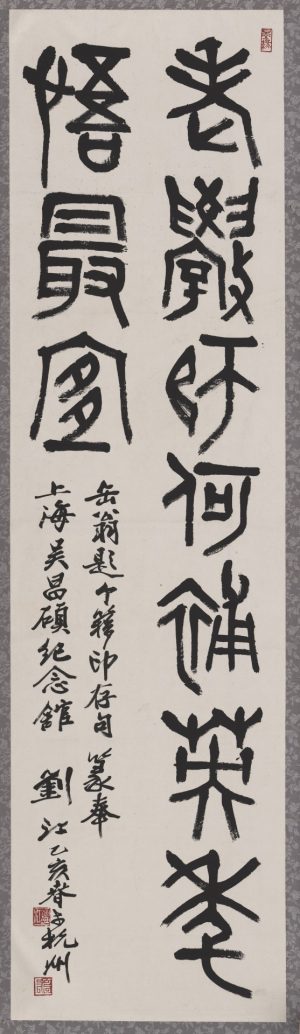 老斆師何補英年
悟最宜
缶翁題个簃印存句 篆奉
上海吴昌碩紀念館 劉江乙亥春于杭州